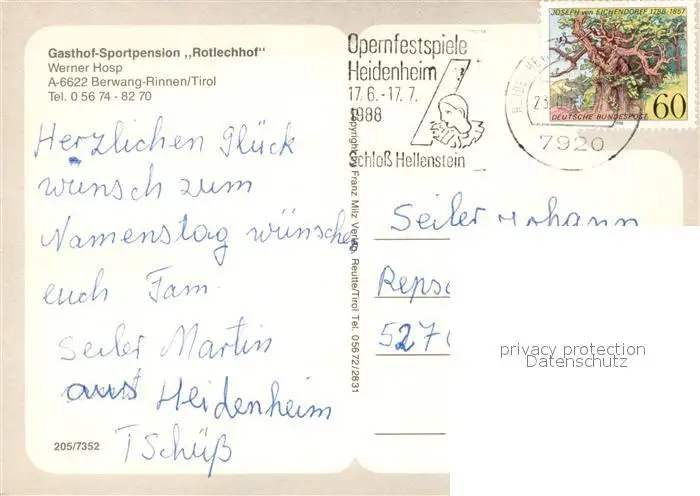 Gasthof-Sportpension „Rotlechhof"
Werner Hosp
A-6622 Berwang-Rinnen/Tirol
Tel. 0 56 74 - 82 70
Herzlichen Glück
wunsch zum
Namenstag wünschen
euch Fam.
Seiler Martin
aus Heidenheim
Tschüß
205/7352
Copyright: Franz Milz Verlag, Reutte/Tirol Tel. 05672/2831
Opernfestspiele
Heidenheim
17. 6. - 17. 7.
1988
Schloß Hellenstein
7920
JOSEPH von EICHENDORFF 1788-1857
DEUTSCHE BUNDESPOST
60
Seiler Johann
Reps
527
privacy protection
Datenschutz